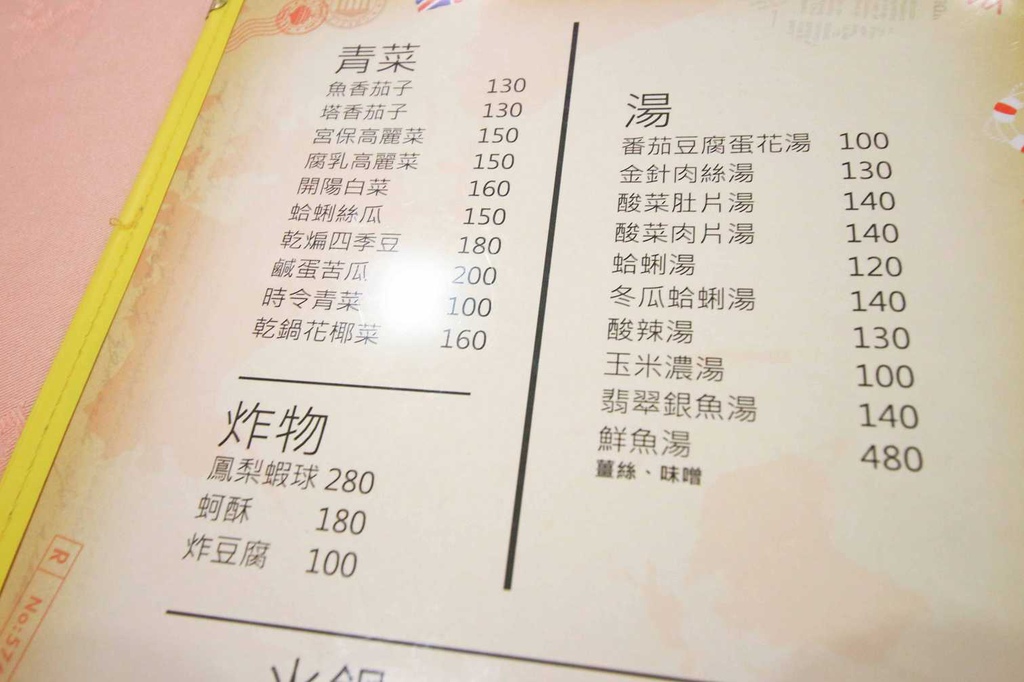 青菜
魚香茄子 130
塔香茄子 130
宮保高麗菜 150
腐乳高麗菜 150
開陽白菜 160
蛤蜊絲瓜 150
乾煸四季豆 180
鹹蛋苦瓜 200
時令青菜 100
乾鍋花椰菜 160
炸物
鳳梨蝦球 280
蚵酥 180
炸豆腐 100
湯
番茄豆腐蛋花湯 100
金針肉絲湯 130
酸菜肚片湯 140
酸菜肉片湯 140
蛤蜊湯 120
冬瓜蛤蜊湯 140
酸辣湯 130
玉米濃湯 100
翡翠銀魚湯 140
鮮魚湯 480
薑絲、味噌
火鍋
R No:57